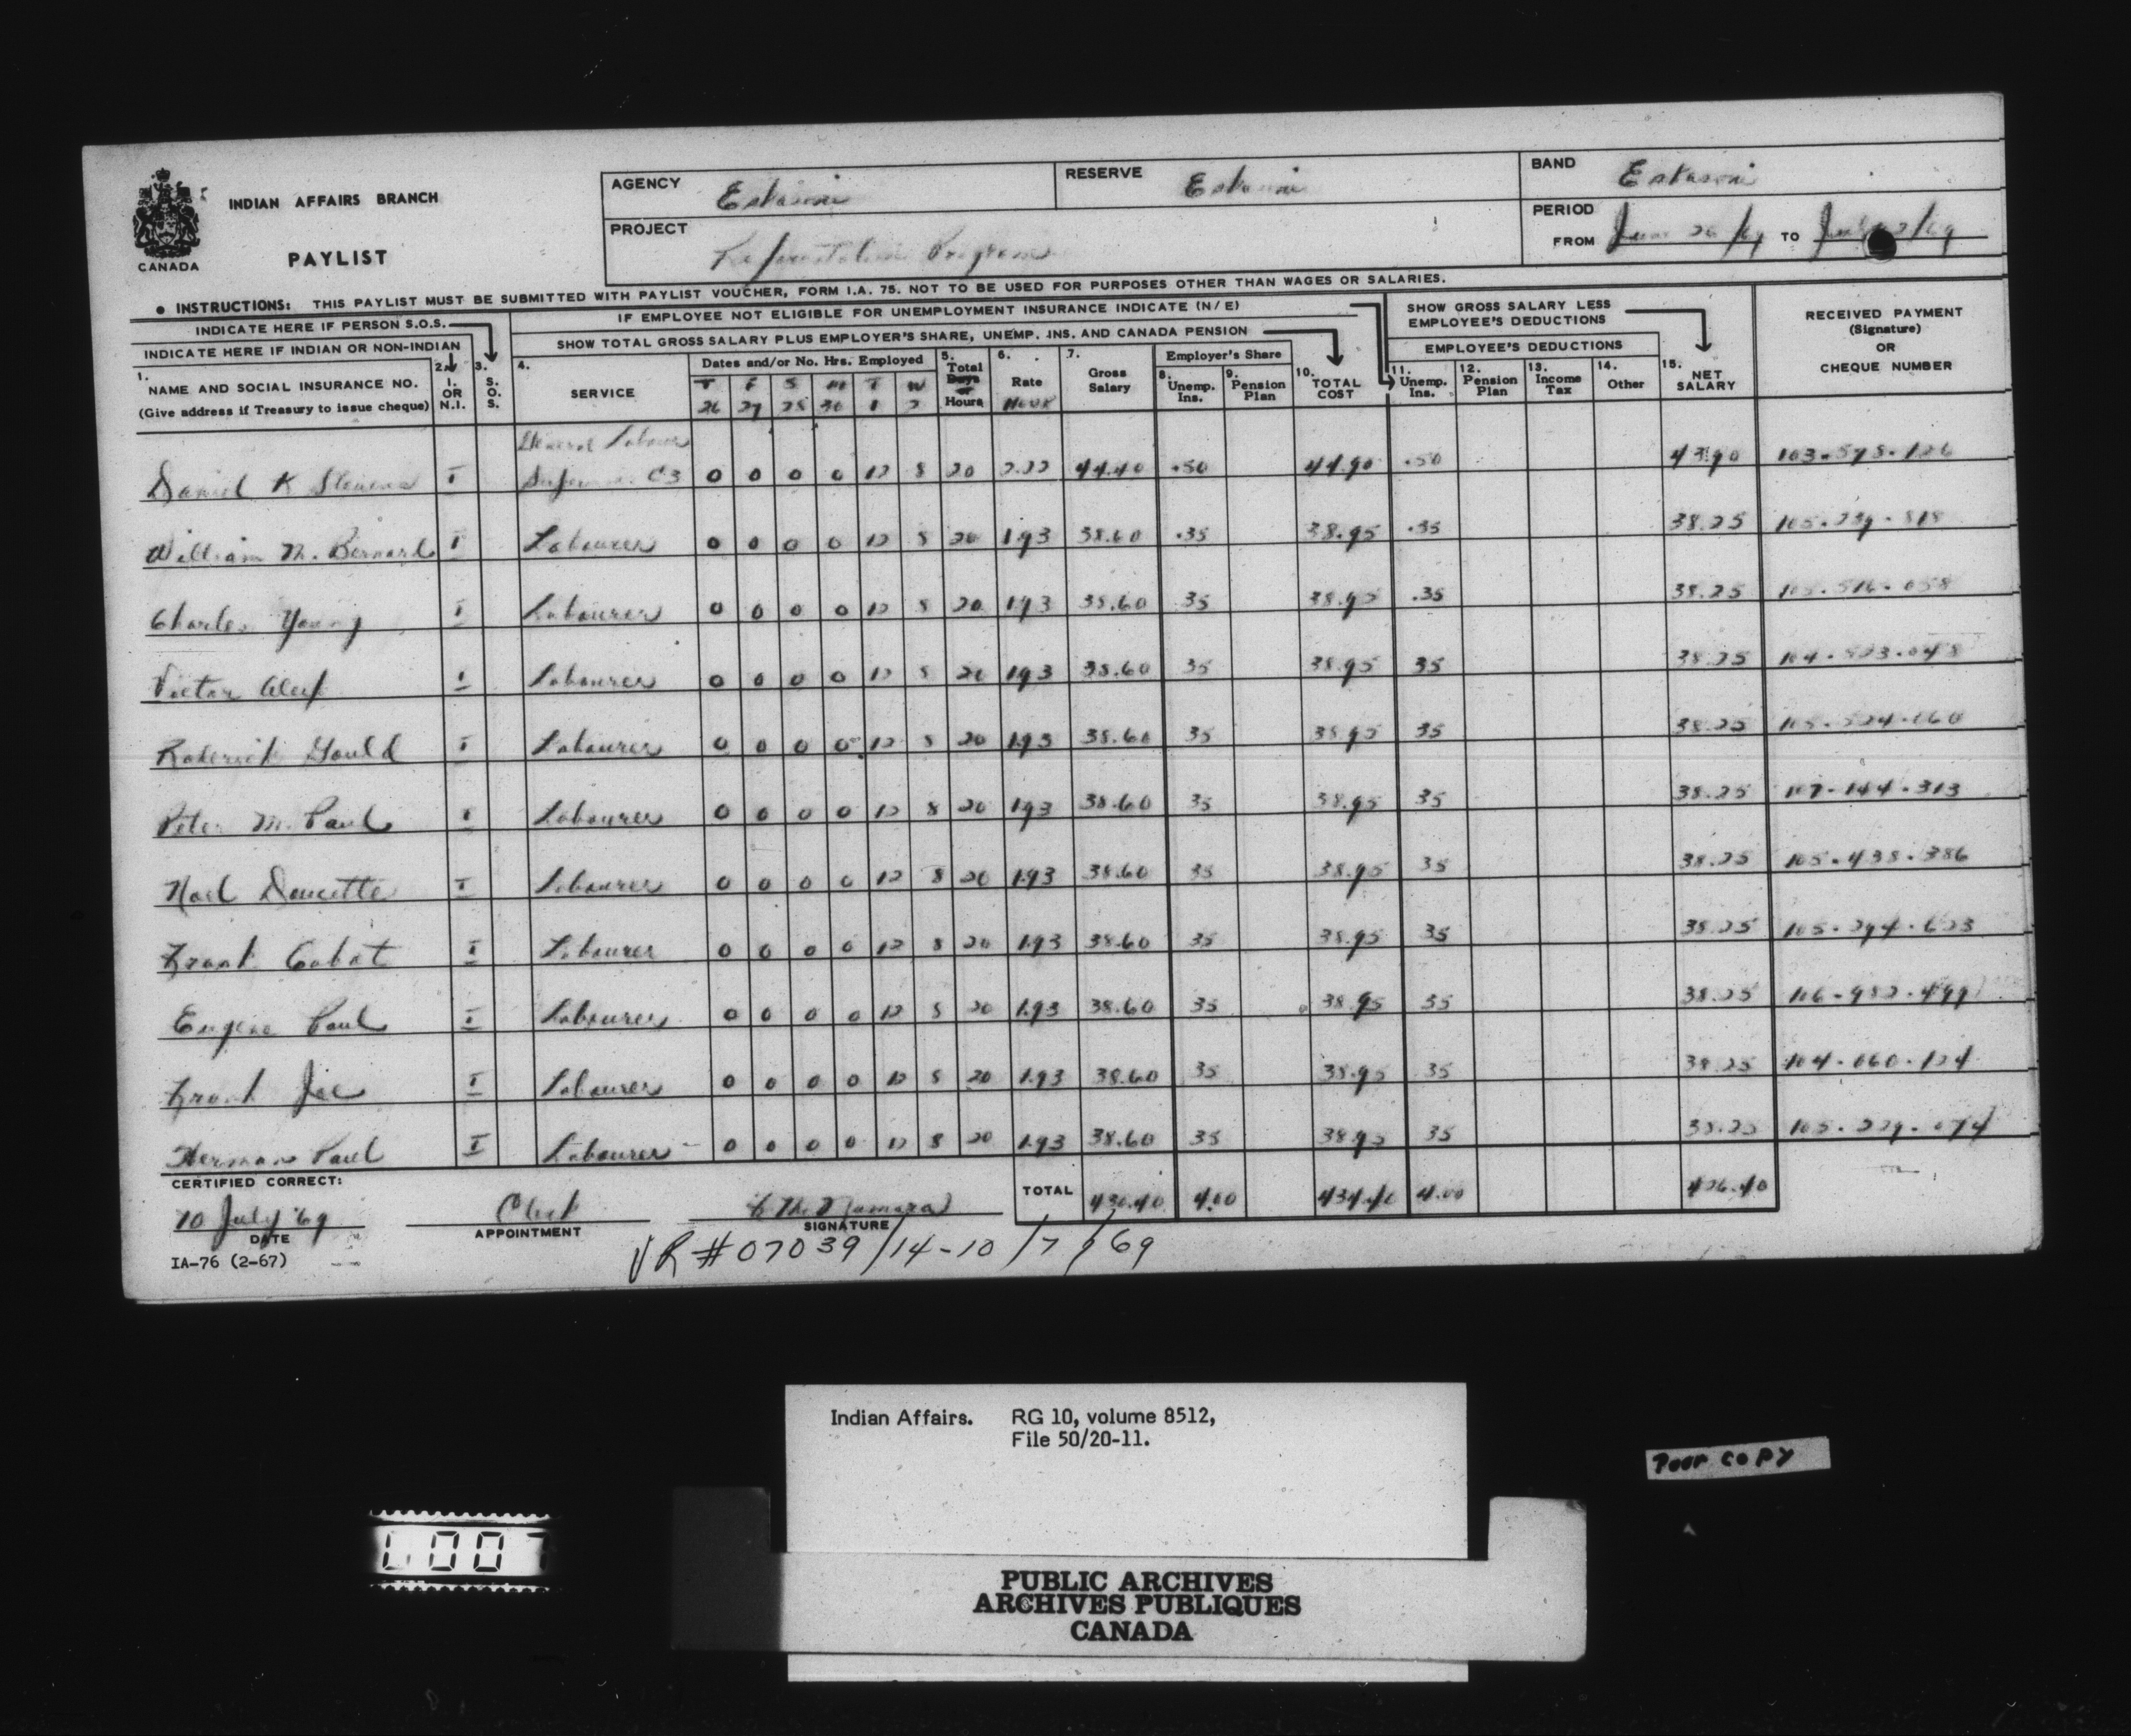 INDIAN AFFAIRS BRANCH
PAYLIST
CANADA
AGENCY Eskasoni
RESERVE Eskasoni
BAND Eskasoni
PROJECT Reforestation Program
PERIOD FROM June 26/69 TO July 2/69
• INSTRUCTIONS: THIS PAYLIST MUST BE SUBMITTED WITH PAYLIST VOUCHER, FORM I.A. 75. NOT TO BE USED FOR PURPOSES OTHER THAN WAGES OR SALARIES.
INDICATE HERE IF PERSON S.O.S.
INDICATE HERE IF INDIAN OR NON-INDIAN
IF EMPLOYEE NOT ELIGIBLE FOR UNEMPLOYMENT INSURANCE INDICATE (N/E)
SHOW TOTAL GROSS SALARY PLUS EMPLOYER'S SHARE, UNEMP. INS. AND CANADA PENSION
SHOW GROSS SALARY LESS EMPLOYEE'S DEDUCTIONS
EMPLOYEE'S DEDUCTIONS
RECEIVED PAYMENT (Signature) OR CHEQUE NUMBER
1. NAME AND SOCIAL INSURANCE NO. (Give address if Treasury to issue cheque)
2. I. OR N.I.
3. S. O. S.
4. SERVICE
Dates and/or No. Hrs. Employed
T F S M T W
26 27 28 30 1 2
5. Total Days or Hours
6. Rate HOUR
7. Gross Salary
Employer's Share
8. Unemp. Ins.
9. Pension Plan
10. TOTAL COST
11. Unemp. Ins.
12. Pension Plan
13. Income Tax
14. Other
15. NET SALARY
General Labour
Daniel K Stevens I Supervisor C3 0 0 0 0 12 8 20 2.22 44.40 .50 44.90 .50 43.90 103-578-126
William M. Bernard I Labourer 0 0 0 0 12 8 20 1.93 38.60 .35 38.95 .35 38.25 105-239-818
Charles Young I Labourer 0 0 0 0 12 8 20 1.93 38.60 35 38.95 .35 38.25 105-516-058
Victor Alex I Labourer 0 0 0 0 12 8 20 1.93 38.60 35 38.95 35 38.25 104-523-048
Roderick Gould I Labourer 0 0 0 0 12 8 20 1.93 38.60 35 38.95 35 38.25 105-524-060
Peter M. Paul I Labourer 0 0 0 0 12 8 20 1.93 38.60 35 38.95 35 38.25 107-144-313
Noel Doucette I Labourer 0 0 0 0 12 8 20 1.93 38.60 35 38.95 35 38.25 105-438-386
Frank Cabot I Labourer 0 0 0 0 12 8 20 1.93 38.60 35 38.95 35 38.25 105-294-623
Eugene Paul I Labourer 0 0 0 0 12 8 20 1.93 38.60 35 38.95 35 38.25 106-982-499
Frank Joe I Labourer 0 0 0 0 12 8 20 1.93 38.60 35 38.95 35 38.25 104-060-124
Herman Paul I Labourer 0 0 0 0 12 8 20 1.93 38.60 35 38.95 35 38.25 105-229-074
CERTIFIED CORRECT:
TOTAL 430.40 4.00 434.40 4.00 426.40
10 July '69 Clerk McNamara
DATE APPOINTMENT SIGNATURE
IA-76 (2-67)
VR # 07039/14-10/7/69
Indian Affairs. RG 10, volume 8512,
File 50/20-11.
Poor copy
PUBLIC ARCHIVES
ARCHIVES PUBLIQUES
CANADA